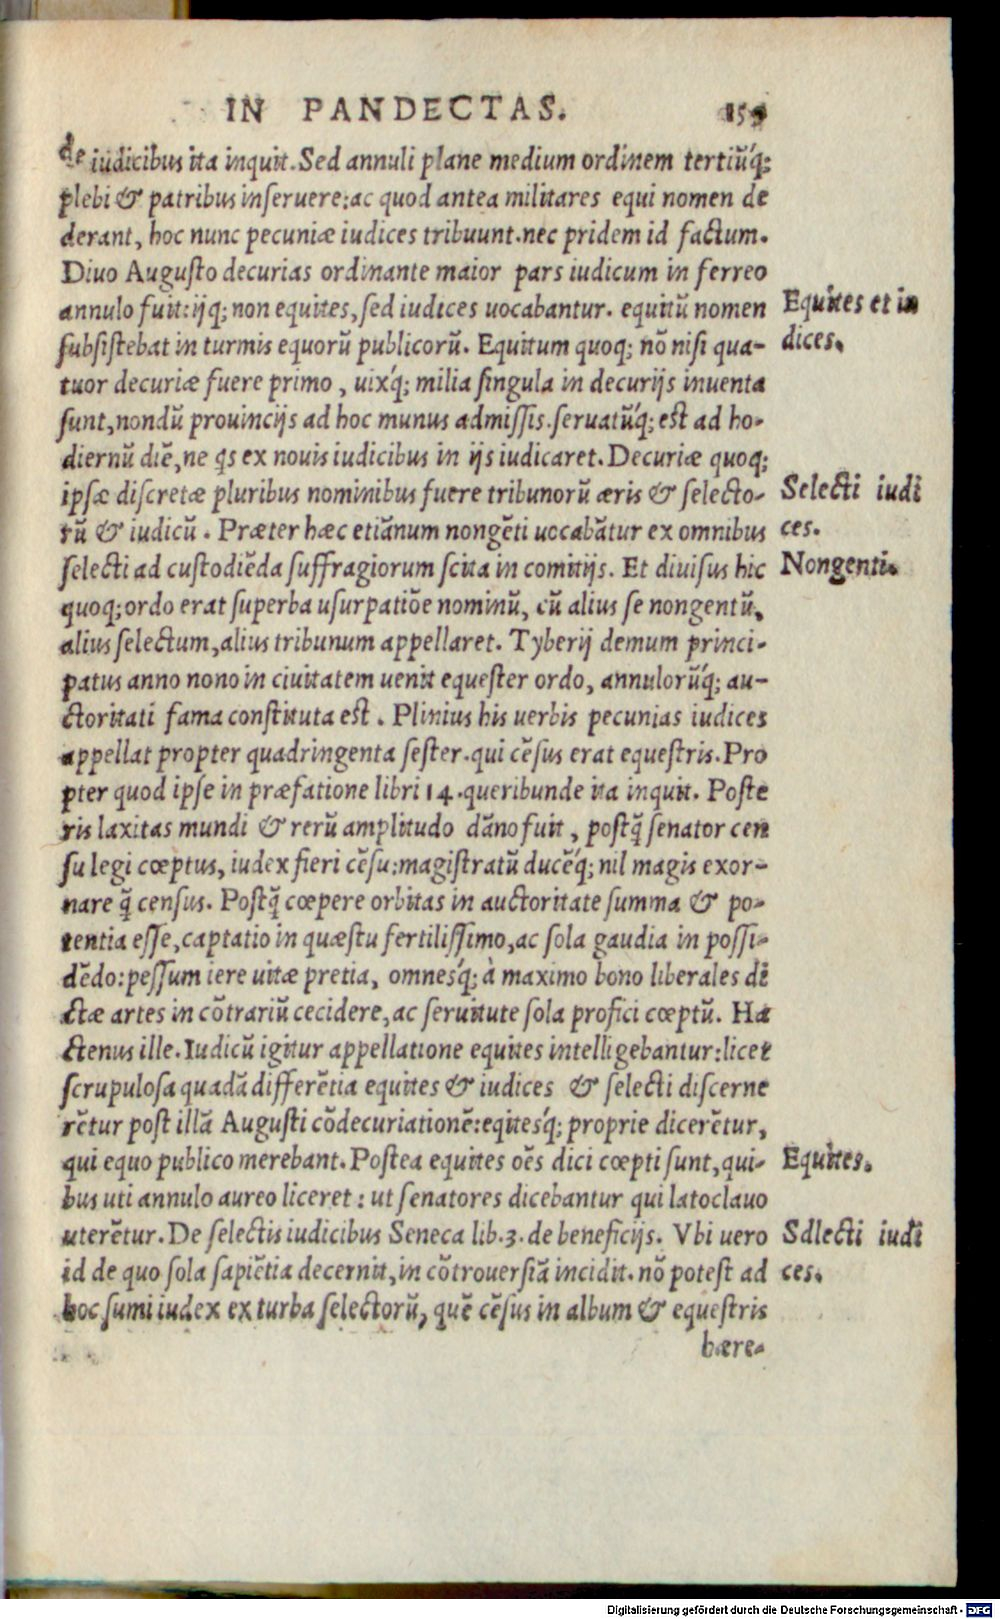 IN PANDECTAS. 159
de iudicibus ita inquit. Sed annuli plane medium ordinem tertiũq́;
plebi & patribus inseruere: ac quod antea militares equi nomen de
derant, hoc nunc pecuniæ iudices tribuunt. nec pridem id factum.
Diuo Augusto decurias ordinante maior pars iudicum in ferreo
annulo fuit: ijq; non equites, sed iudices uocabantur. equitũ nomen
Equites et iu
subsistebat in turmis equorũ publicorũ. Equitum quoq; nõ nisi qua-
dices.
tuor decuriæ fuere primo, uixq́; milia singula in decurijs inuenta
sunt, nondũ prouincijs ad hoc munus admissis. seruatũq́; est ad ho-
diernũ diẽ, ne qs ex nouis iudicibus in ijs iudicaret. Decuriæ quoq;
ipsæ discretæ pluribus nominibus fuere tribunorũ æris & selecto-
Selecti iudi
rũ & iudicũ. Præter hæc etiãnum nongẽti uocabãtur ex omnibus
ces.
selecti ad custodiẽda suffragiorum scita in comitijs. Et diuisus hic
Nongenti.
quoq; ordo erat superba usurpatiõe nominũ, cũ alius se nongentũ,
alius selectum, alius tribunum appellaret. Tyberij demum princi-
patus anno nono in ciuitatem uenit equester ordo, annulorũq́; au-
ctoritati fama constituta est. Plinius his uerbis pecunias iudices
appellat propter quadringenta sester. qui cẽsus erat equestris. Pro
pter quod ipse in præfatione libri 14. queribunde ita inquit. Poste
ris laxitas mundi & rerũ amplitudo dãno fuit, postq̃ senator cen
su legi cœptus, iudex fieri cẽsu: magistratũ ducẽq́; nil magis exor-
nare q̃ census. Postq̃ cœpere orbitas in auctoritate summa & po-
tentia esse, captatio in quæstu fertilissimo, ac sola gaudia in possi-
dẽdo: pessum iere uitæ pretia, omnesq́; à maximo bono liberales di
ctæ artes in cõtrariũ cecidere, ac seruitute sola profici cœptũ. Ha
ctenus ille. Iudicũ igitur appellatione equites intelligebantur: licet
scrupulosa quadã differẽtia equites & iudices & selecti discerne
rẽtur post illã Augusti cõdecuriationẽ: eqitesq́; proprie dicerẽtur,
qui equo publico merebant. Postea equites oẽs dici cœpti sunt, qui-
Equites.
bus uti annulo aureo liceret: ut senatores dicebantur qui latoclauo
uterẽtur. De selectis iudicibus Seneca lib. 3. de beneficijs. Vbi uero
Sdlecti iudi
id de quo sola sapiẽtia decernit, in cõtrouersiã incidit. nõ potest ad
ces.
hoc sumi iudex ex turba selectorũ, quẽ cẽsus in album & equestris
hære-
Digitalisierung gefördert durch die Deutsche Forschungsgemeinschaft - DFG